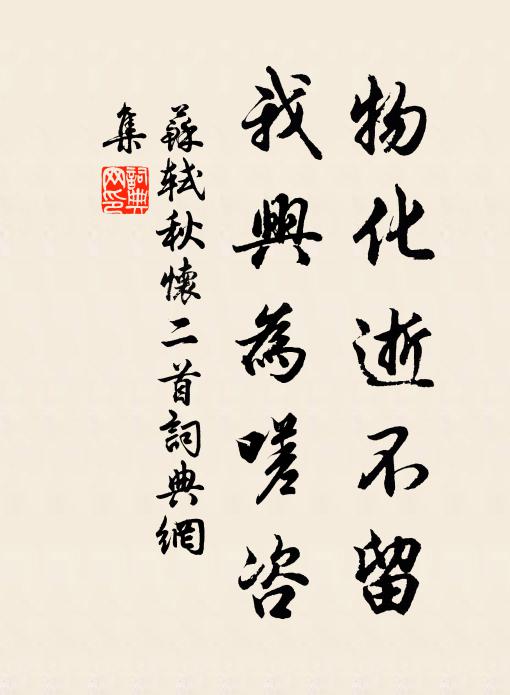 物化逝不留
我興為嗟咨
蘇軾秋懷二首詞典網
集
詞典
网印